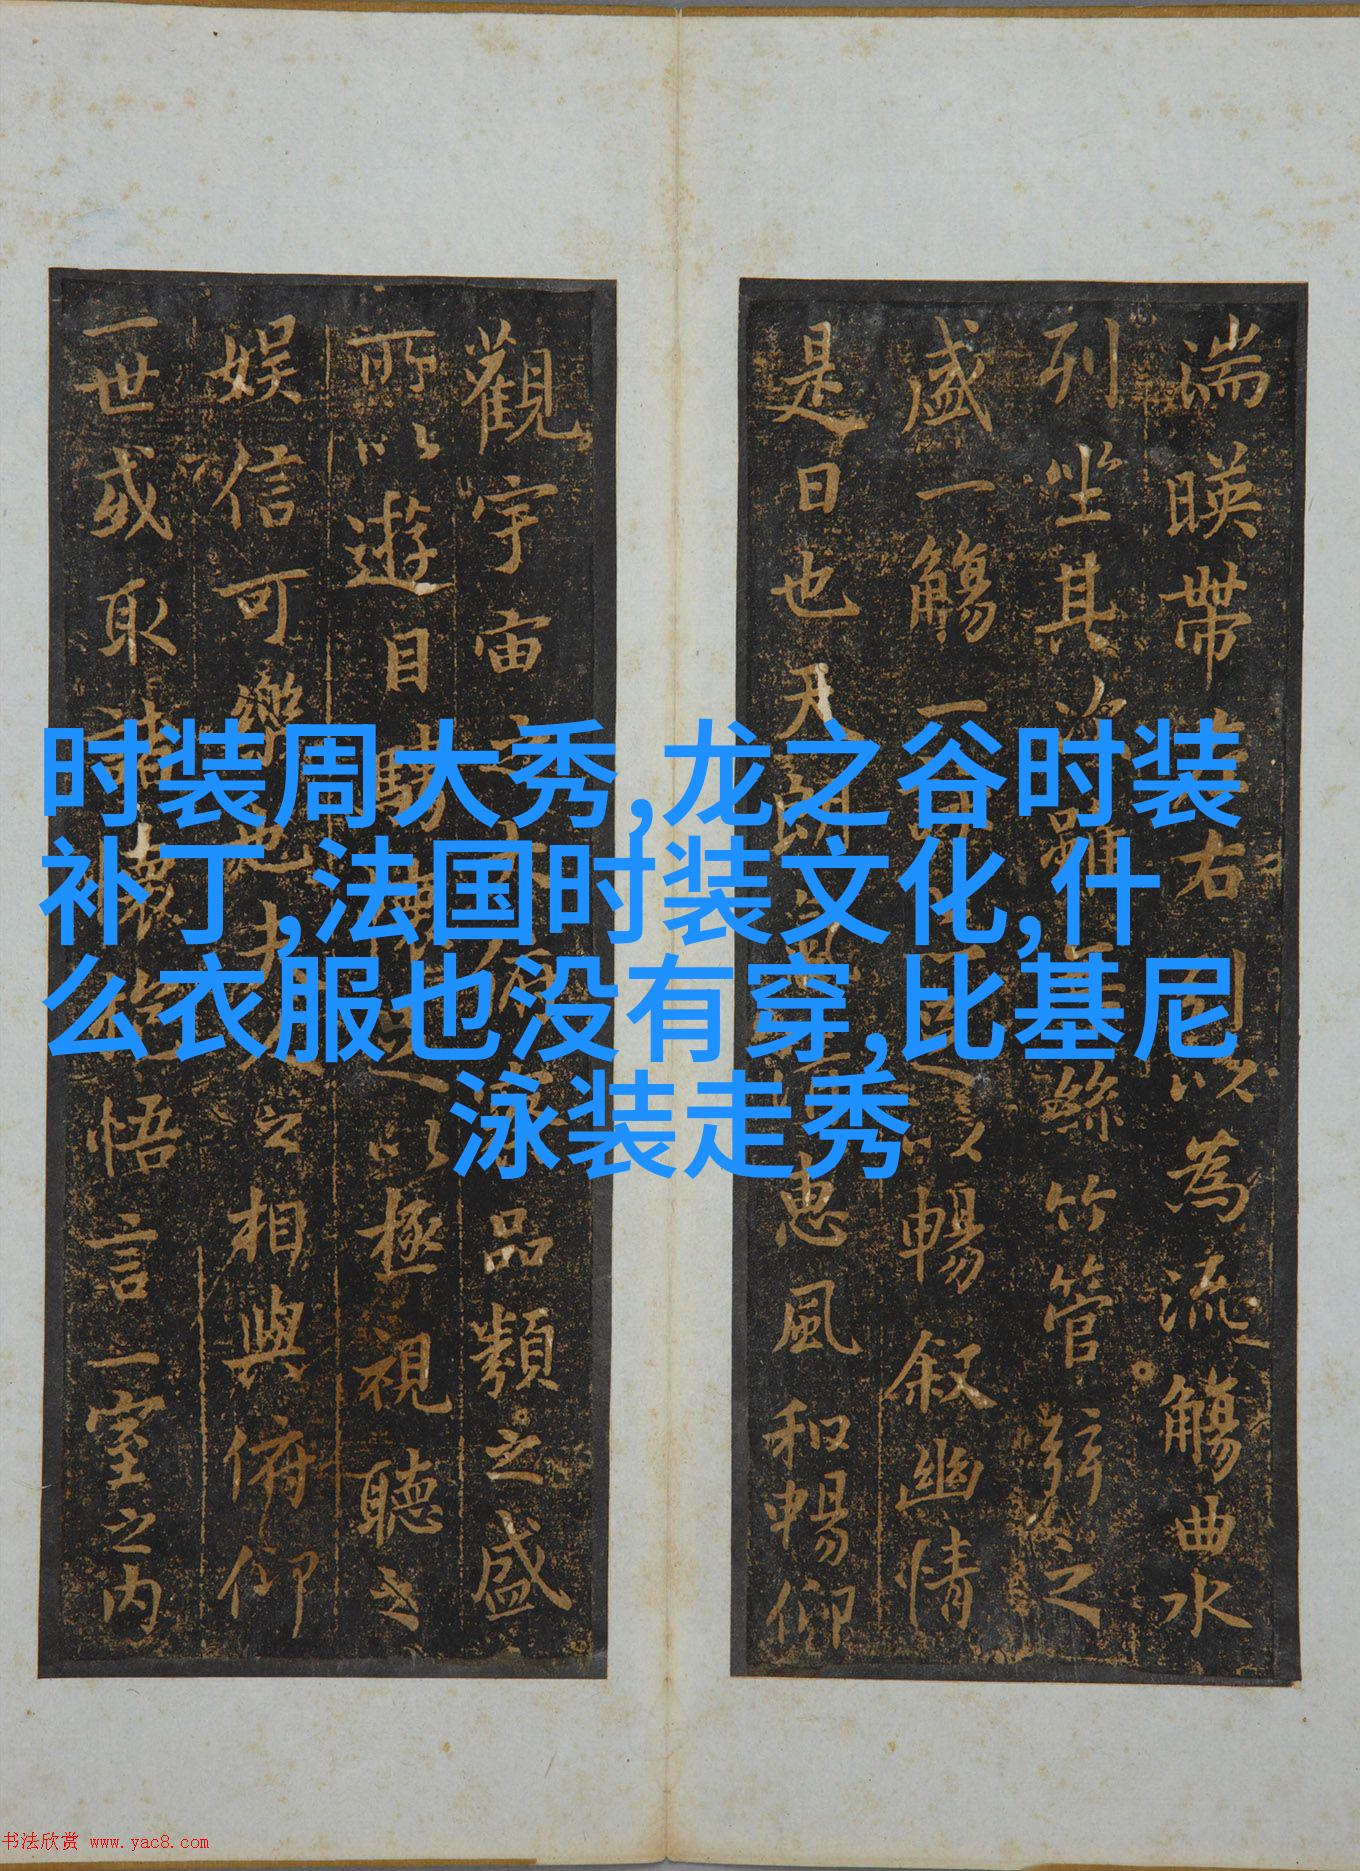 时装周大秀,龙之谷时装
补丁,法国时装文化,什
么衣服也没有穿,比基尼
泳装走秀
湍暎帶左右引以為流觴曲水
列坐其次雖絲竹管弦之
盛一觴一以暢叙幽情
是日也天朗惠風和暢仰
觀宇宙之大品類之盛
所以遊目騁以極視聽之
娱信可樂也夫之相與俯仰
一世或取諸懷抱悟言一室之内
书法欣赏 www.yac8.com